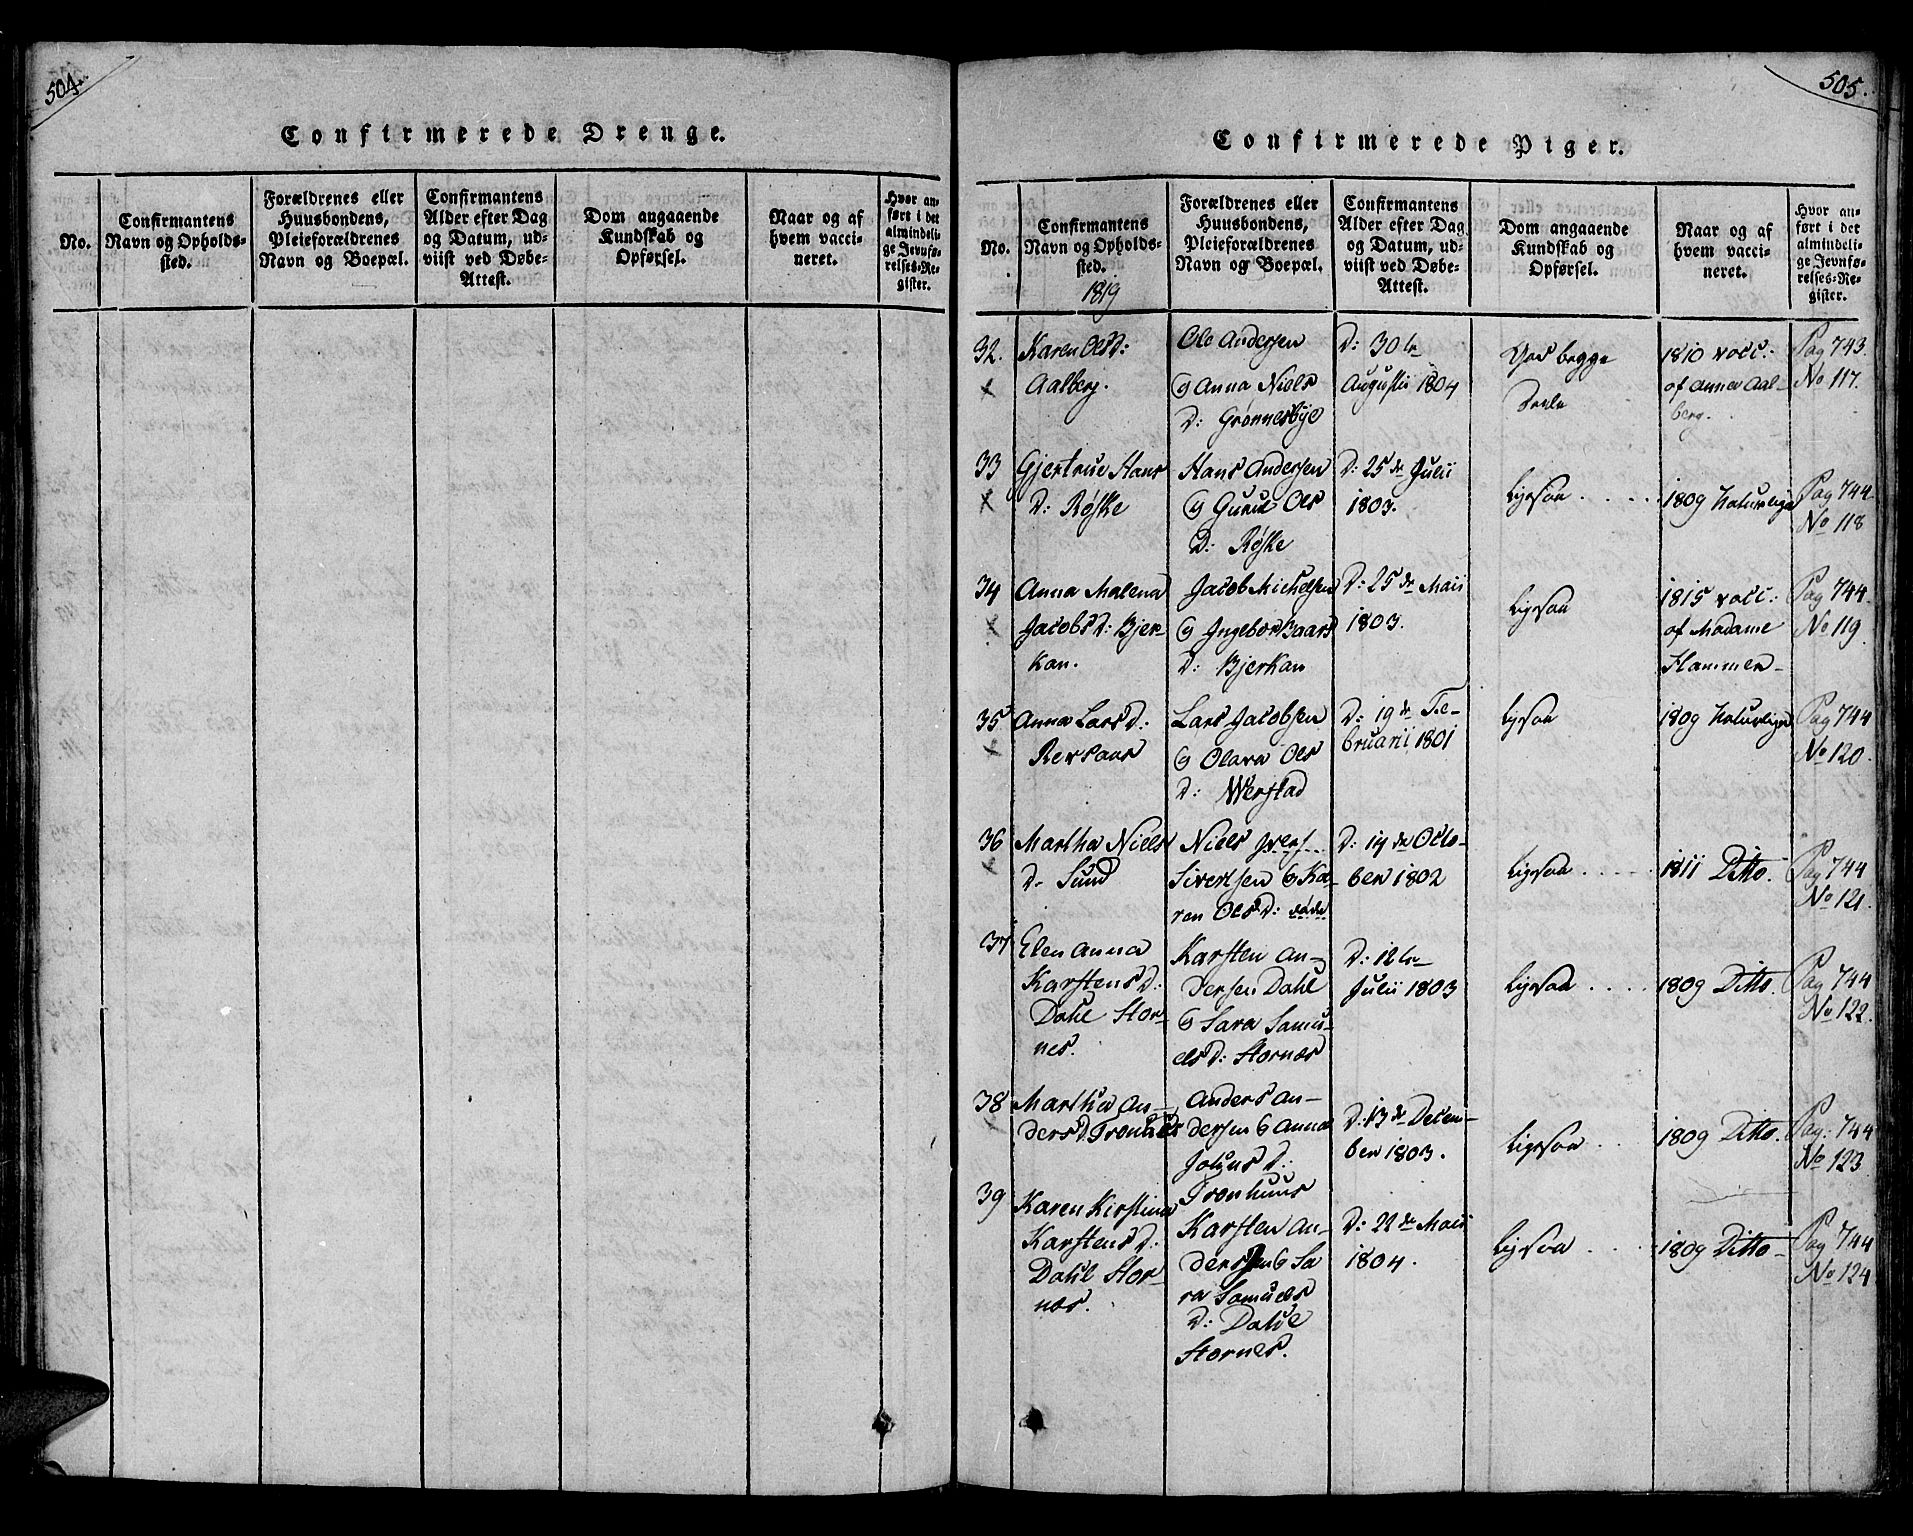 504.
Confirmerede Drenge.
No.
Confirmantens
Navn og Opholds-
sted.
Forældrenes eller
Huusbondens,
Pleieforældrenes
Navn og Boepæl.
Confirmantens
Alder efter Dag
og Datum, ud-
viist ved Døbe-
Attest.
Dom angaaende
Kundskab og
Opførsel.
Naar og af
hvem vacci-
neret.
Hvor an-
ført i det
almindeli-
ge Jevnfø-
relses-Re-
gister.
505.
Confirmerede Piger.
No.
Confirmantens
Navn og Opholds-
sted.
1819
Forældrenes eller
Huusbondens,
Pleieforældrenes
Navn og Boepæl.
Confirmantens
Alder efter Dag
og Datum, ud-
viist ved Døbe-
Attest.
Dom angaaende
Kundskab og
Opførsel.
Naar og af
hvem vacci-
neret.
Hvor an-
ført i det
almindeli-
ge Jevnfø-
relses-Re-
gister.
32.
Karen OlsD:
Aalberg.
Ole Andersen
og Anna Niels
D: Grønnesbye
D: 30te
Augustii 1804
begge
Deele
1810 vacc:
af Anna Aal-
berg.
Pag 743.
No 117.
33
Gjertrue Hans
D: Røske
Hans Andersen
og Guruil Ols
D: Røske
D: 25de Julii
1803.
Ligesaa
1809 Naturlige
Pag 744
No 118
34
Anna Malena
JacobsD: Bjer-
kan.
Jacob Michelsen
og Ingebor Baars
D: Bjerkan
D: 25de Maii
1803.
Ligesaa
1815 vacc:
af Madame
Hammer
Pag 744.
No 119.
35
Anna LarsD.
Rersaas
Lars Jacobsen
og Olava Ols
D: Werstad
D: 19de Fe-
bruarii 1801
Ligesaa
1809 Naturlige
Pag 744
No 120.
36
Martha Niels
D- Sund
Niels
Sivertsen & Ka-
ren OlsD:
D: 14de Octo-
ber 1802
Ligesaa
1811 Ditto.
Pag 744
No 121.
37
Elen Anna
KarstensD:
Dahl Stor-
nes.
Karsten An-
dersen Dahl
& Sara Samu-
elsD: Stornæs
D: 12te
Julii 1803
Ligesaa
1809 Ditto.
Pag 744
No 122.
38
Martha An-
dersD Tronhuus
Anders An-
dersen & Anna
JohnsD:
Tronhuus
D: 13de Decem-
ber 1803.
Ligesaa
1809 Ditto.
Pag: 744
No 123
39
Karen Kirstina
KarstensD:
Dahl Stor-
næs.
Karsten An-
dersen & Sa
ra Samuels
D: Dahl
Stornes.
D: 22de Maii
1804.
Ligesaa
1809 Ditto
Pag 744
No 124